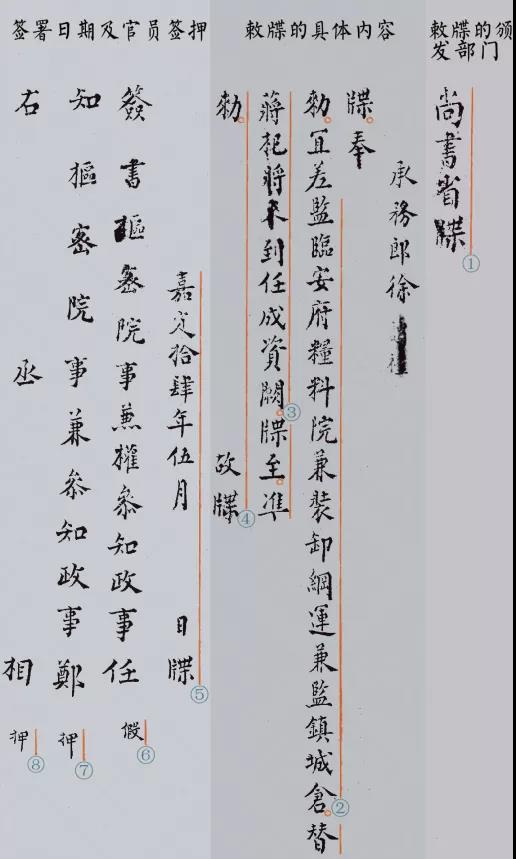 敕牒的颁
发部门
尚書省牒
①
敕牒的具体内容
承務郎徐
牒。奉
勑。宜差監臨安府糧料院兼裝卸綱運兼監鎮城倉。替
②
蔣杞將來到任成資闕。牒至。準
③
勑。故牒
④
签署日期及官员签押
嘉定拾肆年伍月 日牒
⑤
簽書樞密院事兼權叅知政事任 假
⑥
知樞密院事兼叅知政事鄭 押
⑦
右丞相 押
⑧